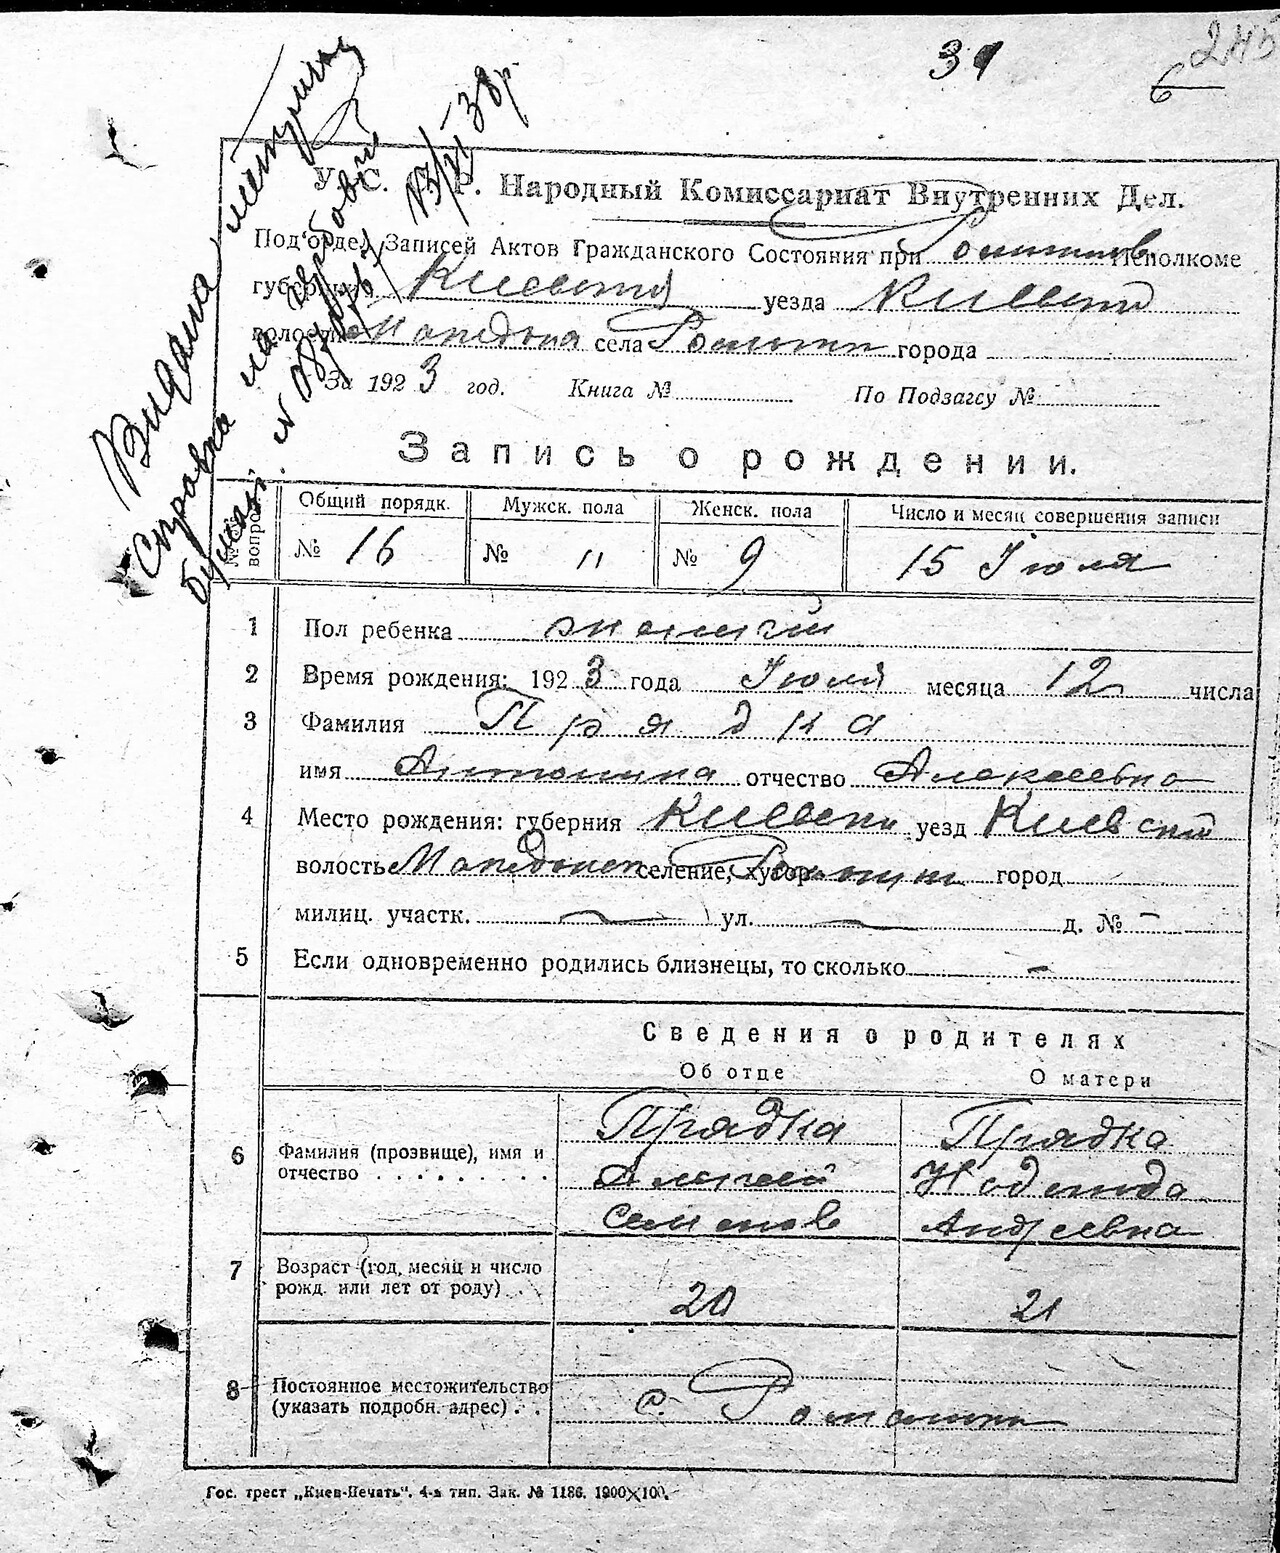 31
245
6
Видана метрична
Справка на
13/VI 38 р
У. С. Р. Народный Комиссариат Внутренних Дел.
Под'отдел Записей Актов Гражданского Состояния при Исполкоме
губернии Киевский уезда Киевский
волости села города
За 1923 год. Книга № По Подзагсу №
Запись о рождении.
№№ вопрос. Общий порядк. Мужск. пола Женск. пола Число и месяц совершения записи
№ 16 № " № 9 15 Июля
1 Пол ребенка женский
2 Время рождения: 1923 года Июля месяца 12 числа
3 Фамилия Прядка
имя Антонина отчество Алексеевна
4 Место рождения: губерния Киевский уезд Киевский
волость селение, хутор город
милиц. участк. — ул. — д. № -
5 Если одновременно родились близнецы, то сколько -
Сведения о родителях
Об отце О матери
6 Фамилия (прозвище), имя и отчество . . . . . . . . .
Прядка
Алексей
Семенов
Прядка
Надежда
Андреевна
7 Возраст (год, месяц и число рожд. или лет от роду) . .
20 21
8 Постоянное местожительство (указать подробн. адрес) . .
с.
Гос. трест „Киев-Печать". 4-я тип. Зак. № 1186. 1900×100.